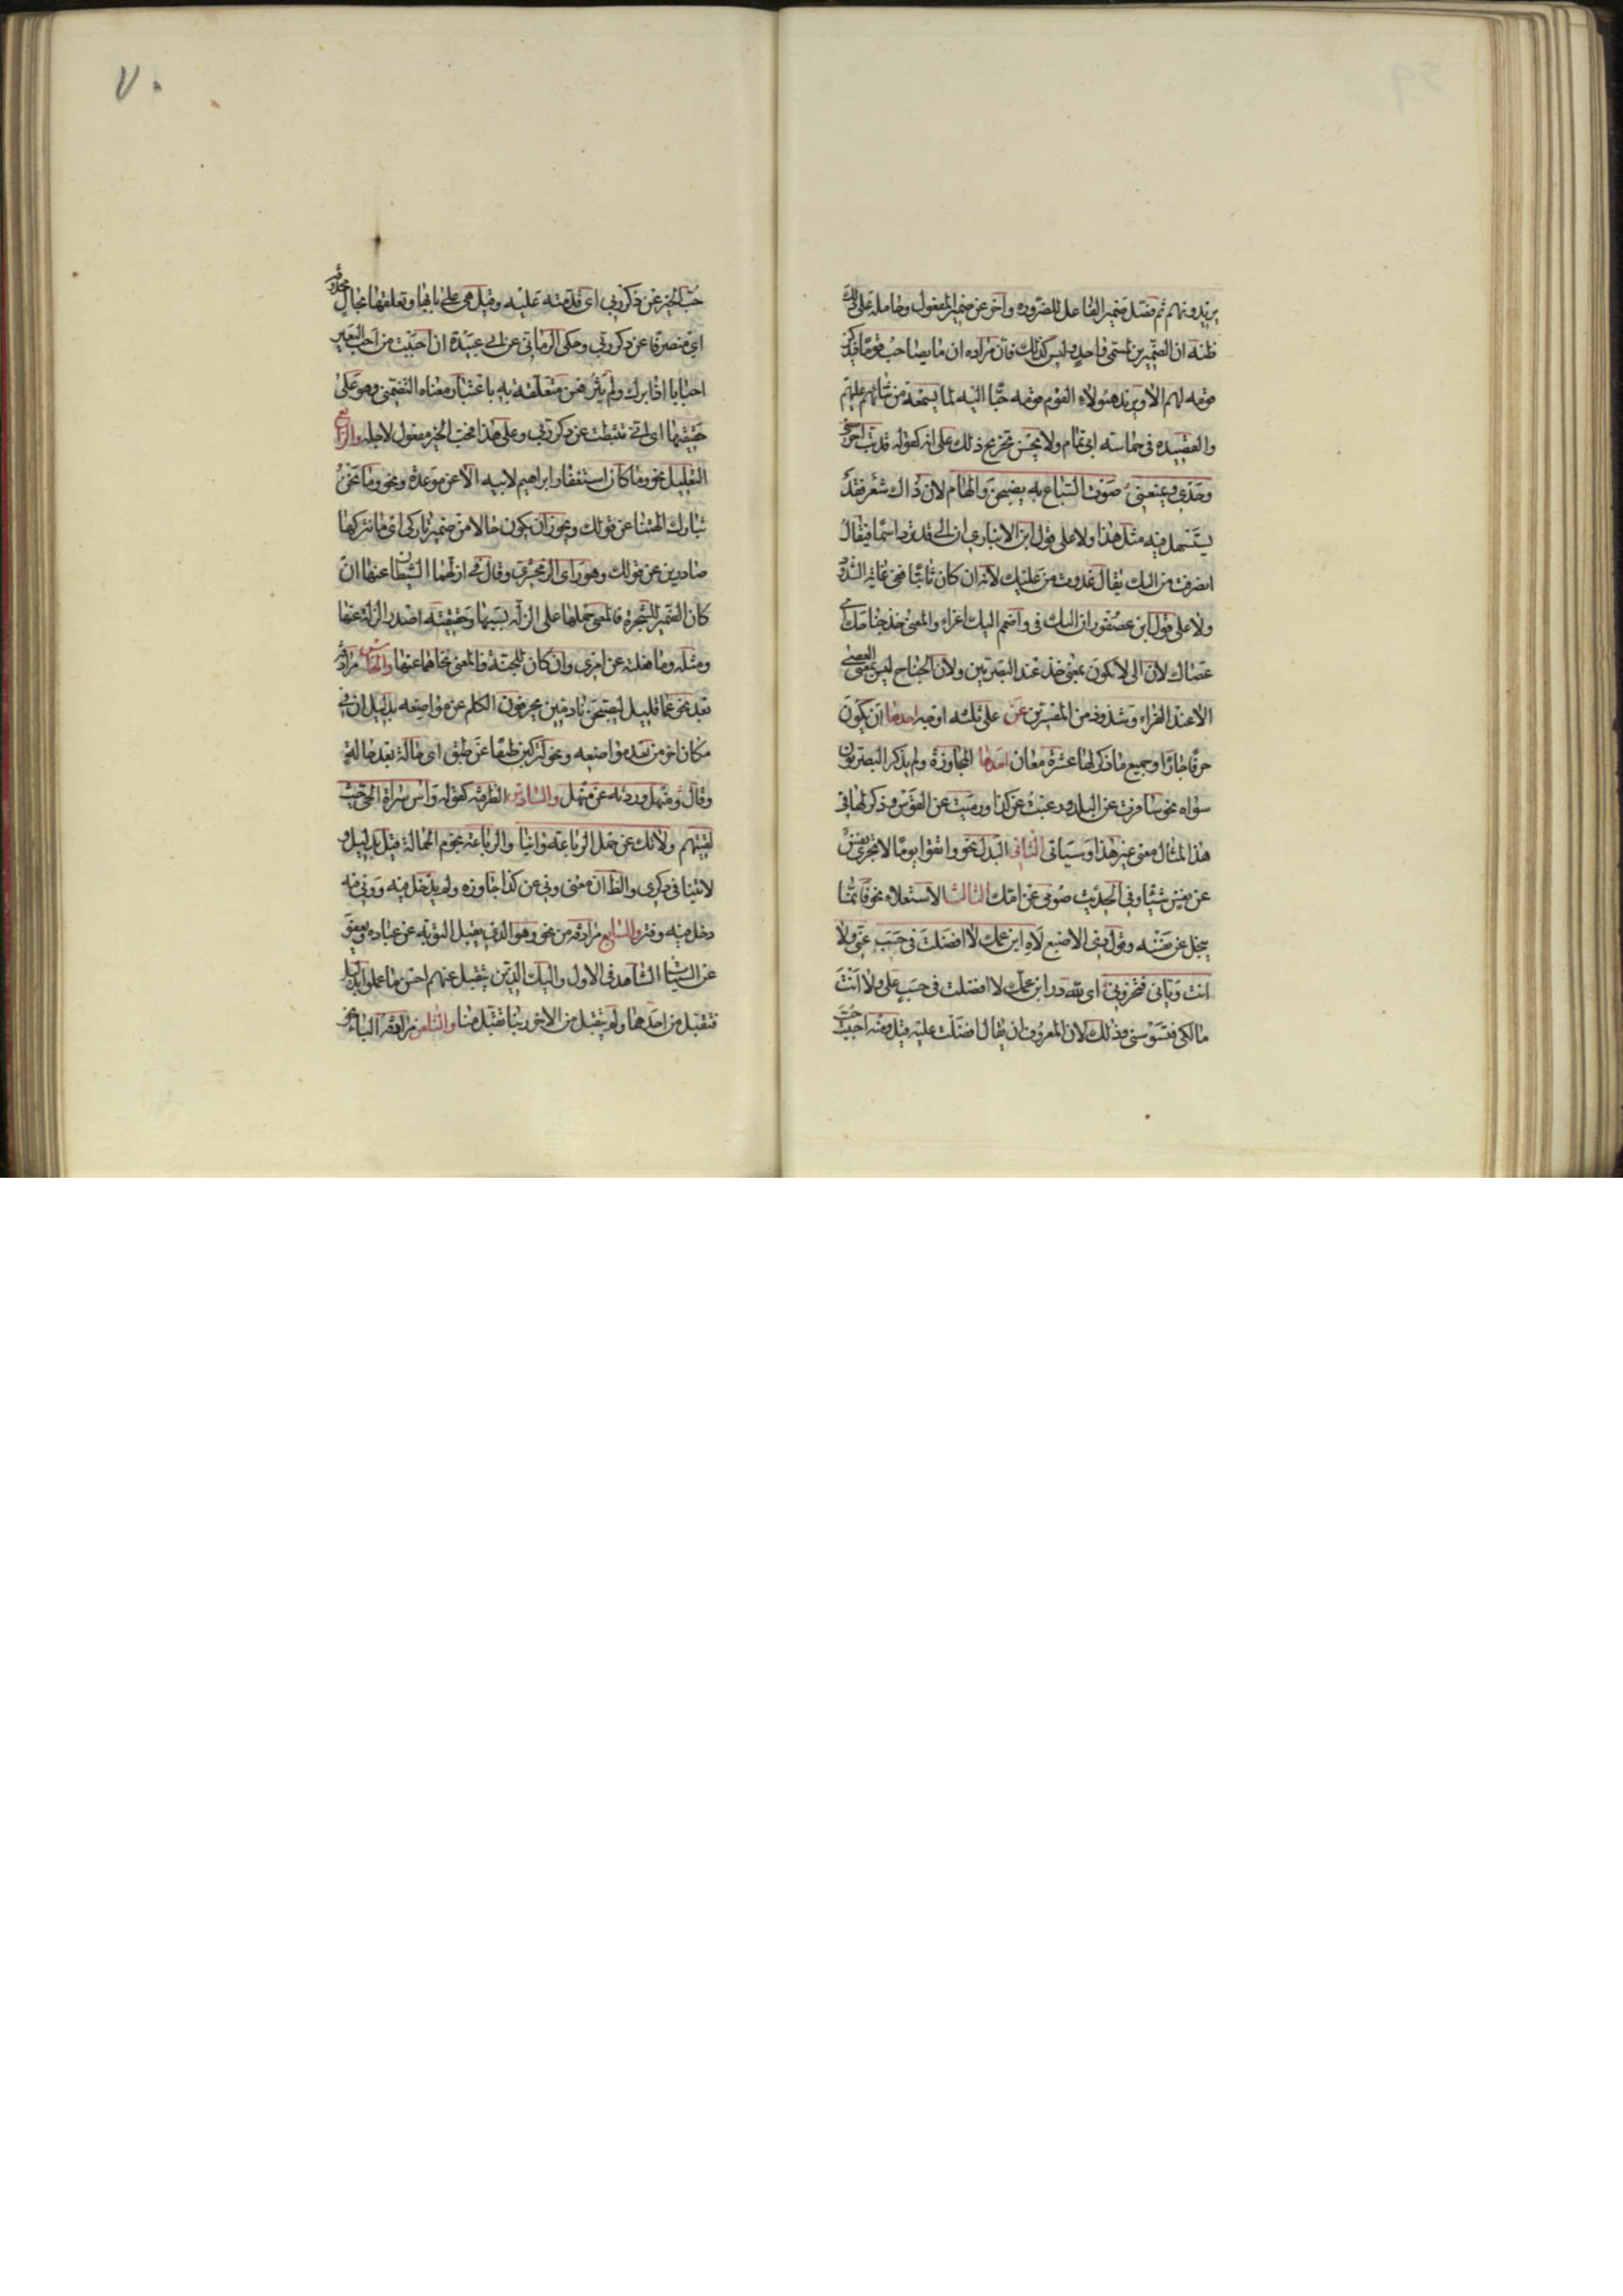 يزيدونهم ثم فصل ضمير الفاعل للضرورة واخر عن ضمير المفعول وحامله على ذلك
ظنه ان الضميرين لمسمى واحد وليس كذلك فان مراده ان ما يصاحب قوما فيذكر
قومه لهم الا ويزيد هؤلاء القوم قومه حبا اليه لما يسمعه من ثنائهم عليهم
والقصيدة في حماسة ابي تمام ولا يحسن تخريج ذلك على انه كقوله قد بت احرسني
وحدي ويمنعني صوت السباع به يضبحن والهام لان ذاك شعر فقد
يستسهل فيه مثل هذا ولا على قول ابن الانباري ان الى قد ترد اسما فيقال
انصرفت من اليك يقال غدوت من عليك لانه ان كان ثابتا ففي غاية الشذوذ
ولا على قول ابن عصفور ان اليك في واضمم اليك اغراء والمعنى خذ جناحك اي
عصاك لان الى لا تكون بمعنى خذ عند البصريين ولان الجناح ليس بمعنى العصى
الا عند الفراء وشذوذ من المفسرين عن على ثلثه اوجه احدها ان يكون
حرفا جارا وجميع ما ذكر لها عشرة معان احدها المجاوزة ولم يذكر البصريون
سواه نحو سافرت عن البلد ورغبت عن كذا ورميت عن القوس وذكر لها في
هذا المثال معنى غير هذا وسياتي الثاني البدل نحو واتقوا يوما لا تجزي نفس
عن نفس شيئا وفي الحديث صومي عن امك الثالث الاستعلاء نحو فانما
يبخل عن نفسه وقول ذي الاصبع لاه ابن عمك لا افضلت في حسب عني ولا
انت دياني فتخزوني اي لله در ابن عمك لا افضلت في حسب علي ولا انت
مالكي فتسوسني وذلك لان المعروف ان يقال افضلت عليه قيل ومنه احببت حب
حب الخير عن ذكر ربي اي قدمته عليه وقيل هي على بابها وتعلقها بحال محذوفة
اي منصرفا عن ذكر ربي وحكى الرماني عن ابي عبيدة ان احببت من احب البعير
احبابا اذا برك ولم يثر فعن متعلقة به باعتبار معناه التضمني وهو على
حقيقتها اي اني تثبطت عن ذكر ربي وعلى هذا فحب الخير مفعول لاجله والرابع
التعليل نحو وما كان استغفار ابراهيم لابيه الا عن موعدة ونحو وما نحن
بتارك الهتنا عن قولك ويجوز ان يكون حالا من ضمير تاركي اي ما نتركها
صادرين عن قولك وهو راي الزمخشري وقال في ازلهما الشيطان عنها ان
كان الضمير للشجرة فالمعنى حملهما على الزلة بسببها وحقيقته اصدر الزلة عنها
ومثله وما فعلته عن امري وان كان للجنة فالمعنى نحاهما عنها والخامس مرادفة
بعد نحو عما قليل ليصبحن نادمين يحرفون الكلم عن مواضعه بدليل ان في
مكان اخر من بعد مواضعه ونحو لتركبن طبقا عن طبق اي حالة بعد حالة
وقال ومنهل وردته عن منهل والسادس الظرفية كقوله وآس سراة الحي حيث
لقيتهم ولا تك عن حمل الرباعة وانيا والرباعة نجوم الحمالة قيل بدليل ولا
لا تنيا في ذكري والظ ان معنى ونى عن كذا جاوزه ولم يدخل فيه وونى فيه
دخل فيه وفتر والسابع مرادفة من نحو وهو الذي يقبل التوبة عن عباده ويعفو
عن السيئات الشاهد في الاولى واليك الذين يتقبل عنهم احسن ما عملوا بدليل
فتقبل من احدهما ولم يتقبل من الاخر ربنا تقبل منا والثامن مرادفة الباء نحو
٧٠